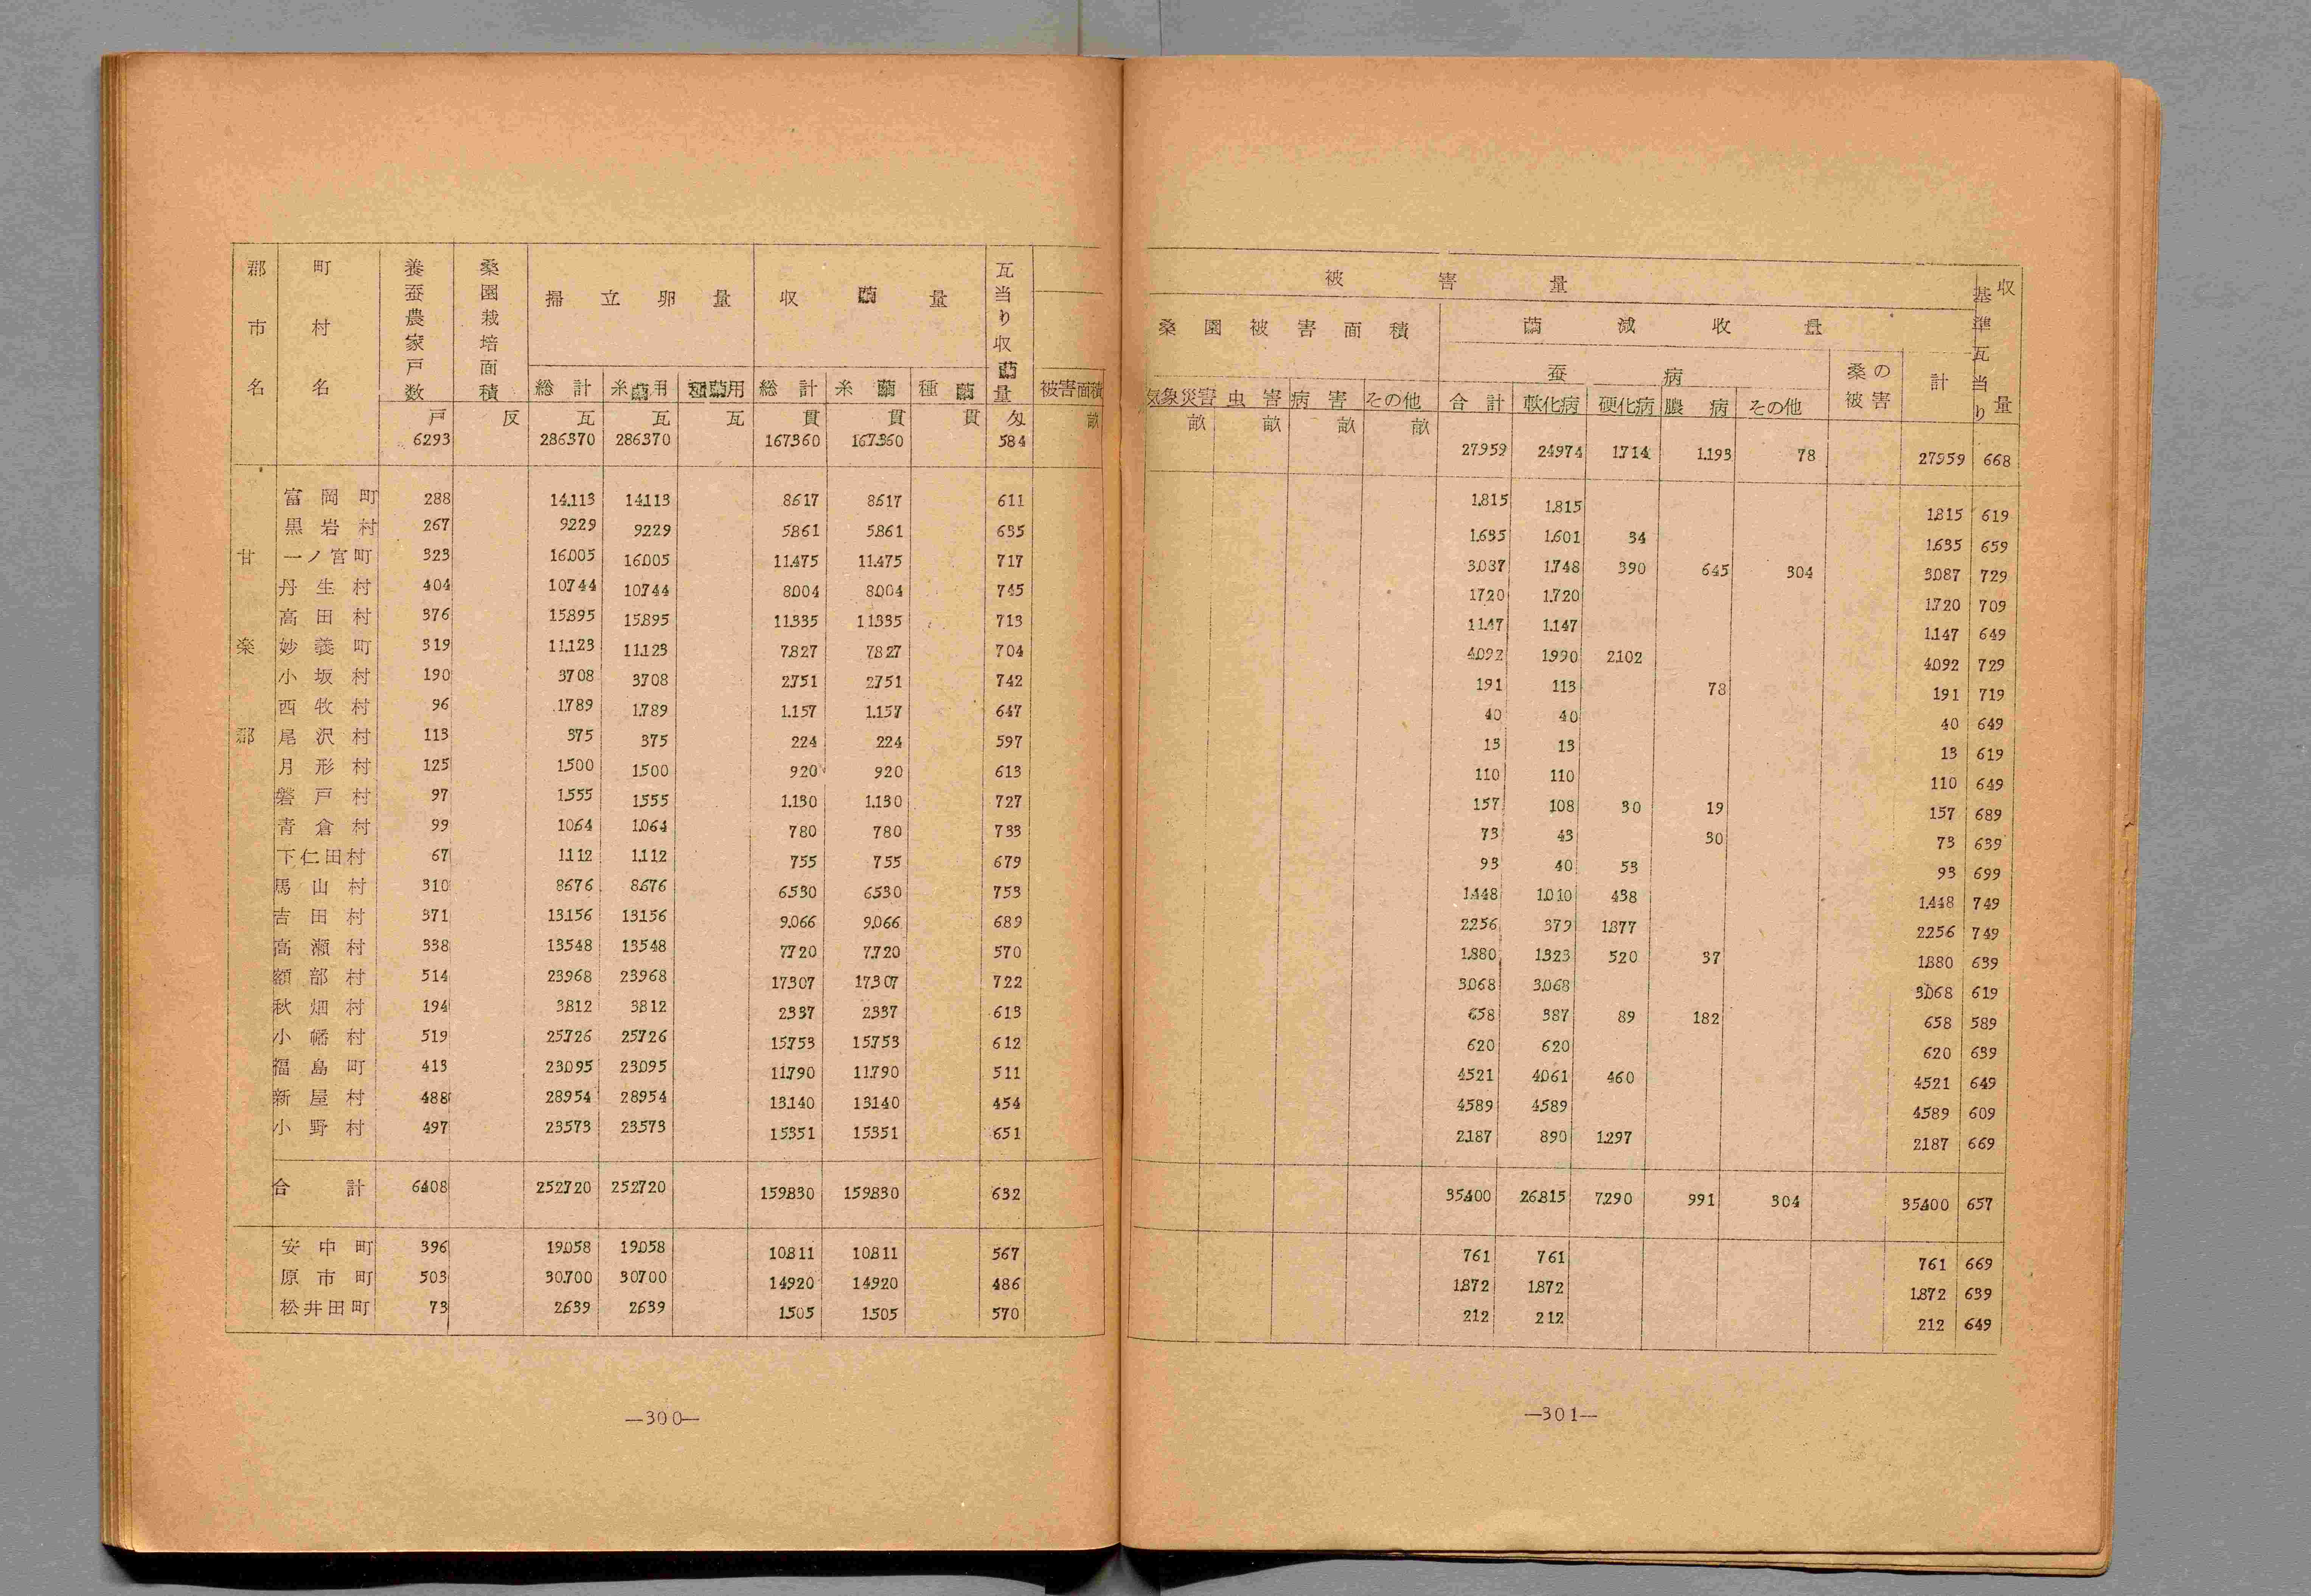 郡市名 町村名 養蚕農家戸数 桑園栽培面積 掃立卵量 収繭量 瓦当り収繭量
総計 糸繭用 種繭用 総計 糸繭 種繭 被害面積
戸 反 瓦 瓦 瓦 貫 貫 貫 匁 畝
6293 286370 286370 167360 167360 584
甘楽郡
富岡町 288 14.113 14.113 8617 8617 611
黒岩村 267 9229 9229 5861 5.861 635
一ノ宮町 323 16.005 16.005 11.475 11.475 717
丹生村 404 10744 10744 8004 8.004 745
高田村 376 15895 15895 11.335 11335 713
妙義町 319 11.123 11.123 7.827 7827 704
小坂村 190 3708 3708 2.751 2.751 742
西牧村 96 1.789 1.789 1.157 1.157 647
尾沢村 113 375 375 224 224 597
月形村 125 1.500 1.500 920 920 613
磐戸村 97 1.555 1.555 1.130 1.130 727
青倉村 99 1064 1.064 780 780 733
下仁田村 67 1.112 1.112 755 755 679
馬山村 310 8676 8.676 6.530 6.530 753
吉田村 371 13.156 13.156 9.066 9.066 689
高瀬村 338 13548 13548 7.720 7.720 570
額部村 514 23.968 23.968 17.307 17.307 722
秋畑村 194 3812 3812 2.337 2.337 613
小幡村 519 25.726 25.726 15.753 15.753 612
福島町 413 23.095 23.095 11.790 11.790 511
新屋村 488 28954 28954 13.140 13.140 454
小野村 497 23.573 23.573 15351 15351 651
合計 6408 252.720 252.720 159.830 159.830 632
安中町 396 19.058 19.058 10.811 10.811 567
原市町 503 30.700 30.700 14920 14920 486
松井田町 73 2.639 2.639 1.505 1.505 570
—300—
被害量 基準瓦当り収量
桑園被害面積 繭減収量
蚕病 桑の被害 計
気象災害 虫害 病害 その他 合計 軟化病 硬化病 膿病 その他
畝 畝 畝 畝
27.959 24974 1.714 1.193 78 27959 668
1.815 1.815 1.815 619
1.635 1.601 34 1.635 659
3.087 1.748 390 645 304 3.087 729
1.720 1.720 1.720 709
1.147 1.147 1.147 649
4.092 1.990 2.102 4.092 729
191 113 78 191 719
40 40 40 649
13 13 13 619
110 110 110 649
157 108 30 19 157 689
73 43 30 73 639
93 40 53 93 699
1.448 1.010 438 1.448 749
2256 379 1.877 2256 749
1.880 1.323 520 37 1.880 639
3.068 3.068 3.068 619
658 387 89 182 658 589
620 620 620 639
4521 4.061 460 4521 649
4589 4589 4589 609
2.187 890 1.297 2187 669
35.400 26.815 7.290 991 304 35.400 657
761 761 761 669
1.872 1.872 1.872 639
212 212 212 649
—301—